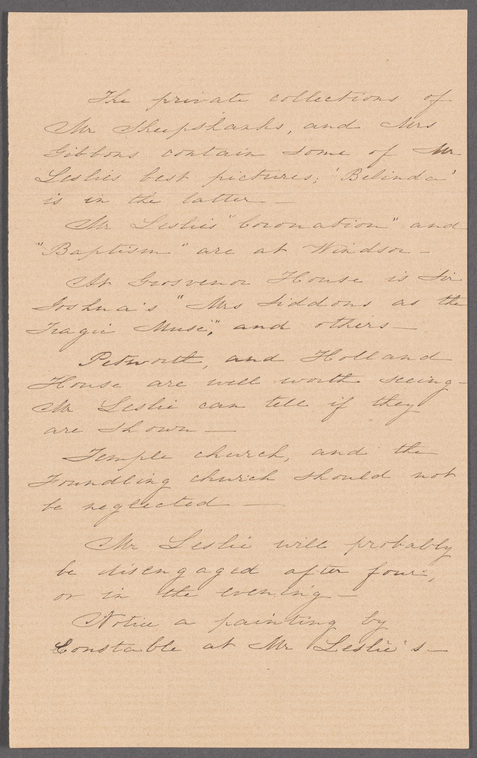 The private collections of
Mr Sheepshanks, and Mrs
Gibbons contain some of Mr
Leslie's best pictures; "Belinda"
is in the latter —
Mr Leslie's "Coronation" and
"Baptism" are at Windsor —
At Grosvenor House is Sir
Joshua's "Mrs Siddons as the
Tragic Muse", and others —
Petworth, and Holland
House are well worth seeing —
Mr Leslie can tell if they
are shown —
Temple church, and the
Foundling church should not
be neglected —
Mr Leslie will probably
be disengaged after four,
or in the evening —
Notice a painting by
Constable at Mr Leslie's —